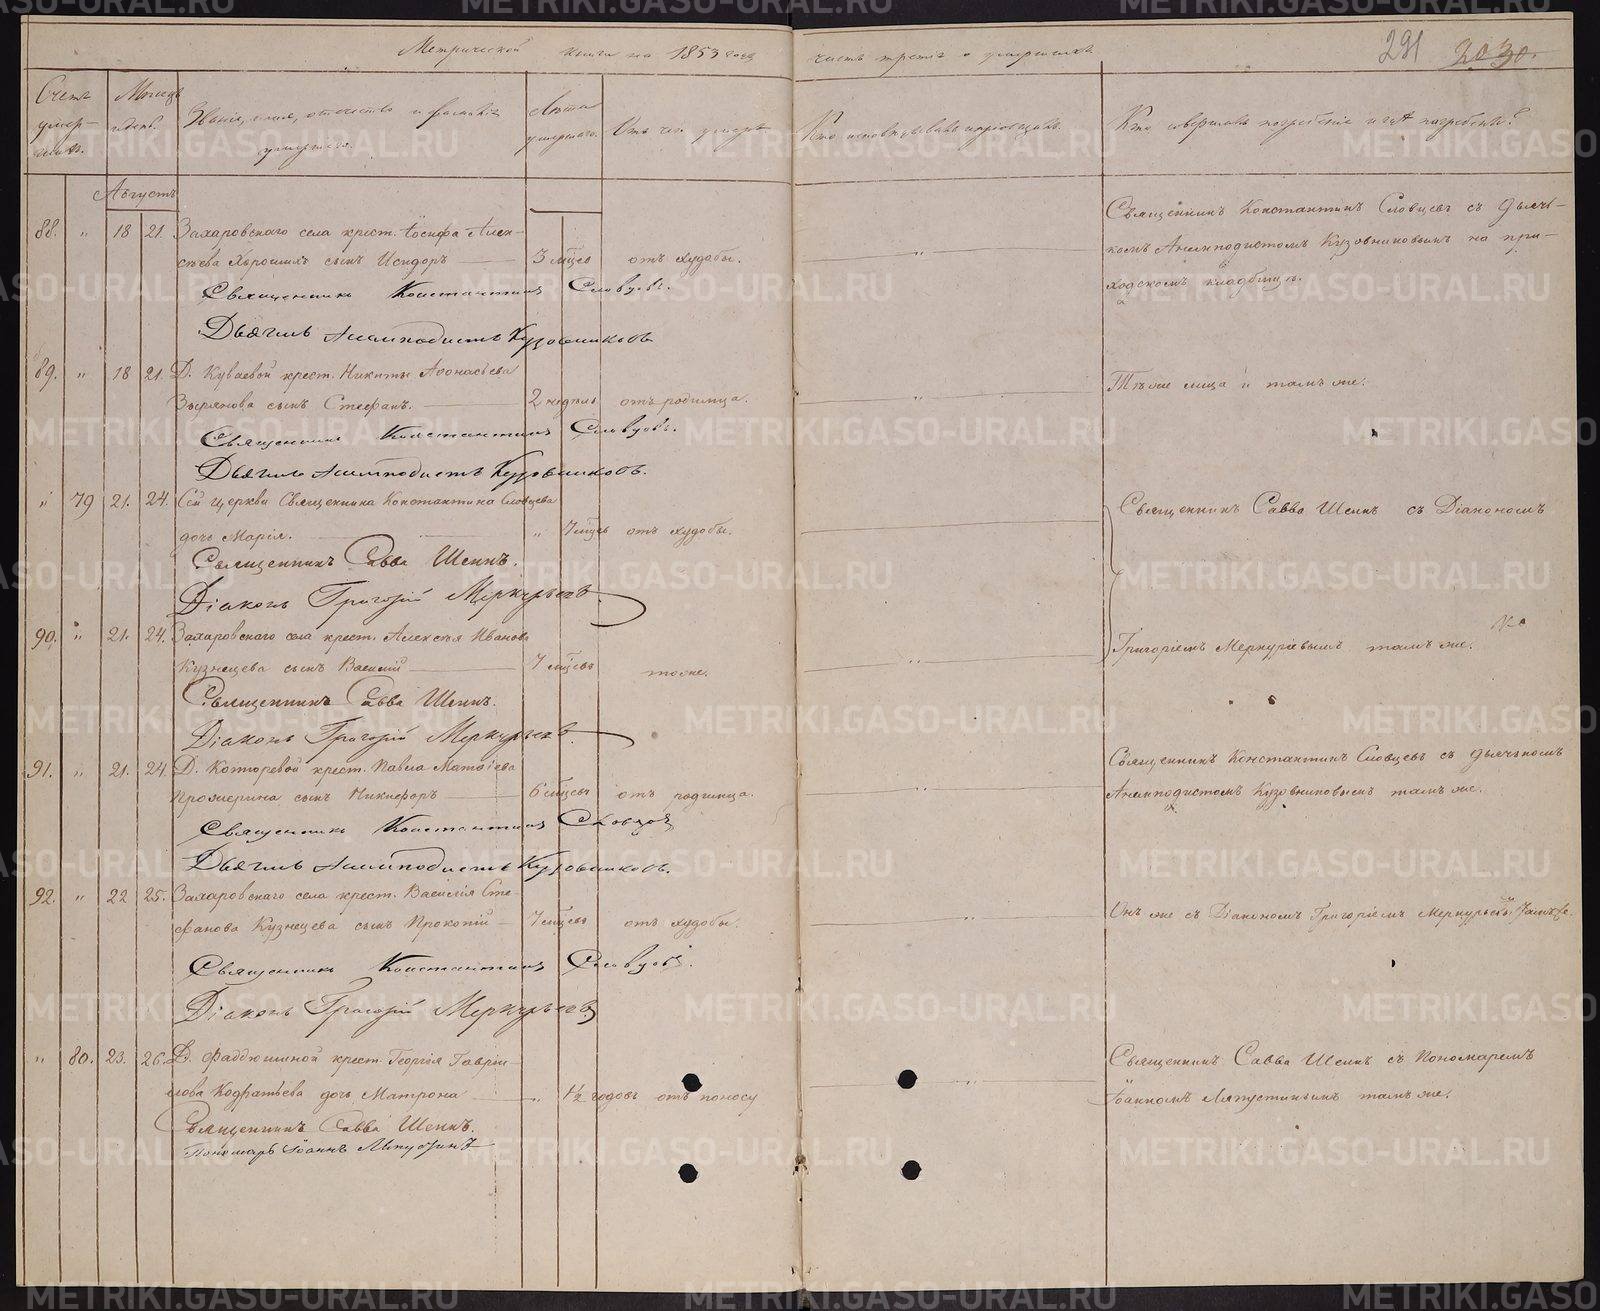 Метрической книги на 1853 годъ
часть третія о умершихъ
291 2030.
Счетъ умер-шихъ.
Мѣсяцъ и день.
Званіе, имя, отечество и фамилія умершаго.
Лѣта умершаго.
Отъ чего умеръ
Кто исповѣдывалъ и пріобщалъ.
Кто совершалъ погребеніе и гдѣ погребены?
Августъ
88. " 18 21. Захаровскаго села крест. Іосифа Алек-
сѣева сынъ Исидоръ 3 мѣсяц отъ худобы.
Священникъ Константинъ Словцовъ съ дьяч-
комъ Анемподистомъ Кузовниковымъ на при-
ходскомъ кладбищѣ.
Священникъ Константинъ Словцовъ.
Дьячекъ Анемподистъ Кузовниковъ
89. " 18 21. Д. Куваевой крест. Никиты Аѳонасьева
Зырянова сынъ Стефанъ. 2 недѣль отъ родимца.
Тѣ же лица и тамъ же.
Священникъ Константинъ Словцовъ.
Дьячекъ Анемподистъ Кузовниковъ.
" 79 21. 24. Сей церкви Священника Константина Словцева
дочь Марія. " 7 мѣсцъ отъ худобы.
Священникъ Савва Шеинъ съ Діакономъ
Священникъ Савва Шеинъ.
Діаконъ Григорій Меркурьевъ
90. " 21. 24. Захаровскаго села крест. Алексѣя Иванова
Кузнецева сынъ Василій 7 мѣсцъ тоже.
Григоріемъ Меркуріевымъ тамъ же.
Священникъ Савва Шеинъ.
Діаконъ Григорій Меркурьевъ.
91. " 21. 24. Д. Котюревой крест. Павла Матѳіева
сынъ Никифоръ 6 мѣсцъ отъ родимца.
Священникъ Константинъ Словцевъ съ дьячкомъ
Анемподистомъ Кузовниковымъ тамъ же.
Священникъ Константинъ Словцовъ
Дьячекъ Анемподистъ Кузовниковъ.
92. " 22 25. Захаровскаго села крест. Василія Сте-
фанова Кузнецева сынъ Прокопій 7 мѣсцъ отъ худобы.
Онъ же съ Діакономъ Григоріемъ Меркурьевымъ тамъ же.
Священникъ Константинъ Словцовъ.
Діаконъ Григорій Меркурьевъ
" 80. 23. 26. Д. Фаддюшиной крест. Георгія Гаврі-
лова Кодратьева дочь Матрона " 1½ годовъ отъ поносу
Священникъ Савва Шеинъ съ Пономаремъ
Іоанномъ Ляпустинымъ тамъ же.
Священникъ Савва Шеинъ.
Пономарь Іоаннъ Ляпустинъ
METRIKI.GASO-URAL.RU